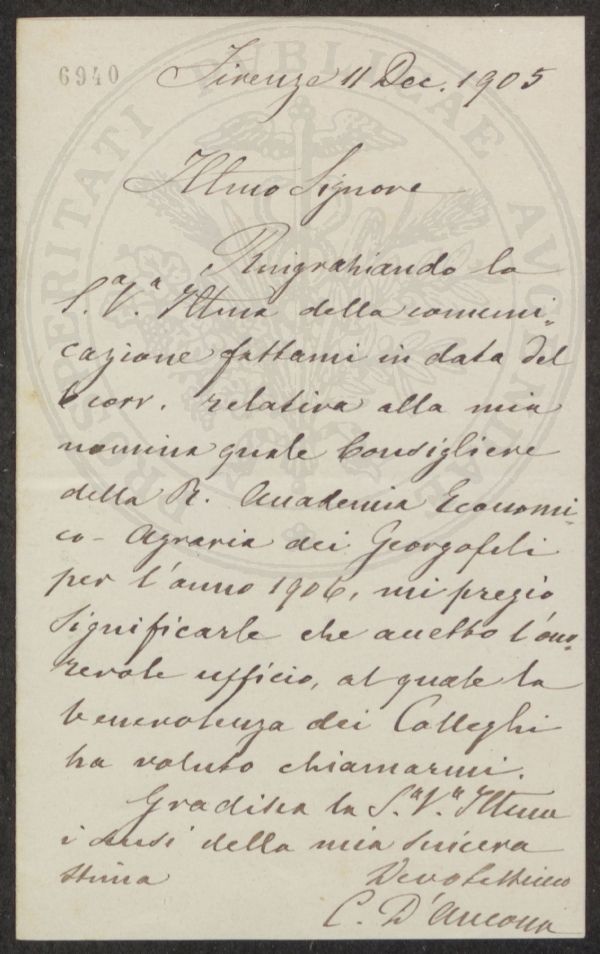 6940
Firenze 11 Dec. 1905
Illmo Signore
Ringraziando la
S.a V.a Illma della comuni=
cazione fattami in data del
6 corr. relativa alla mia
nomina quale Consigliere
della R. Accademia Economi=
co-Agraria dei Georgofili
per l'anno 1906, mi pregio
significarle che accetto l'ono=
revole ufficio, al quale la
benevolenza dei Colleghi
ha voluto chiamarmi.
Gradisca la S.a V.a Illma
i sensi della mia sincera
stima
Devotissimo
C. D'Ancona
PROSPERITATI PUBLICAE AUGENDAE